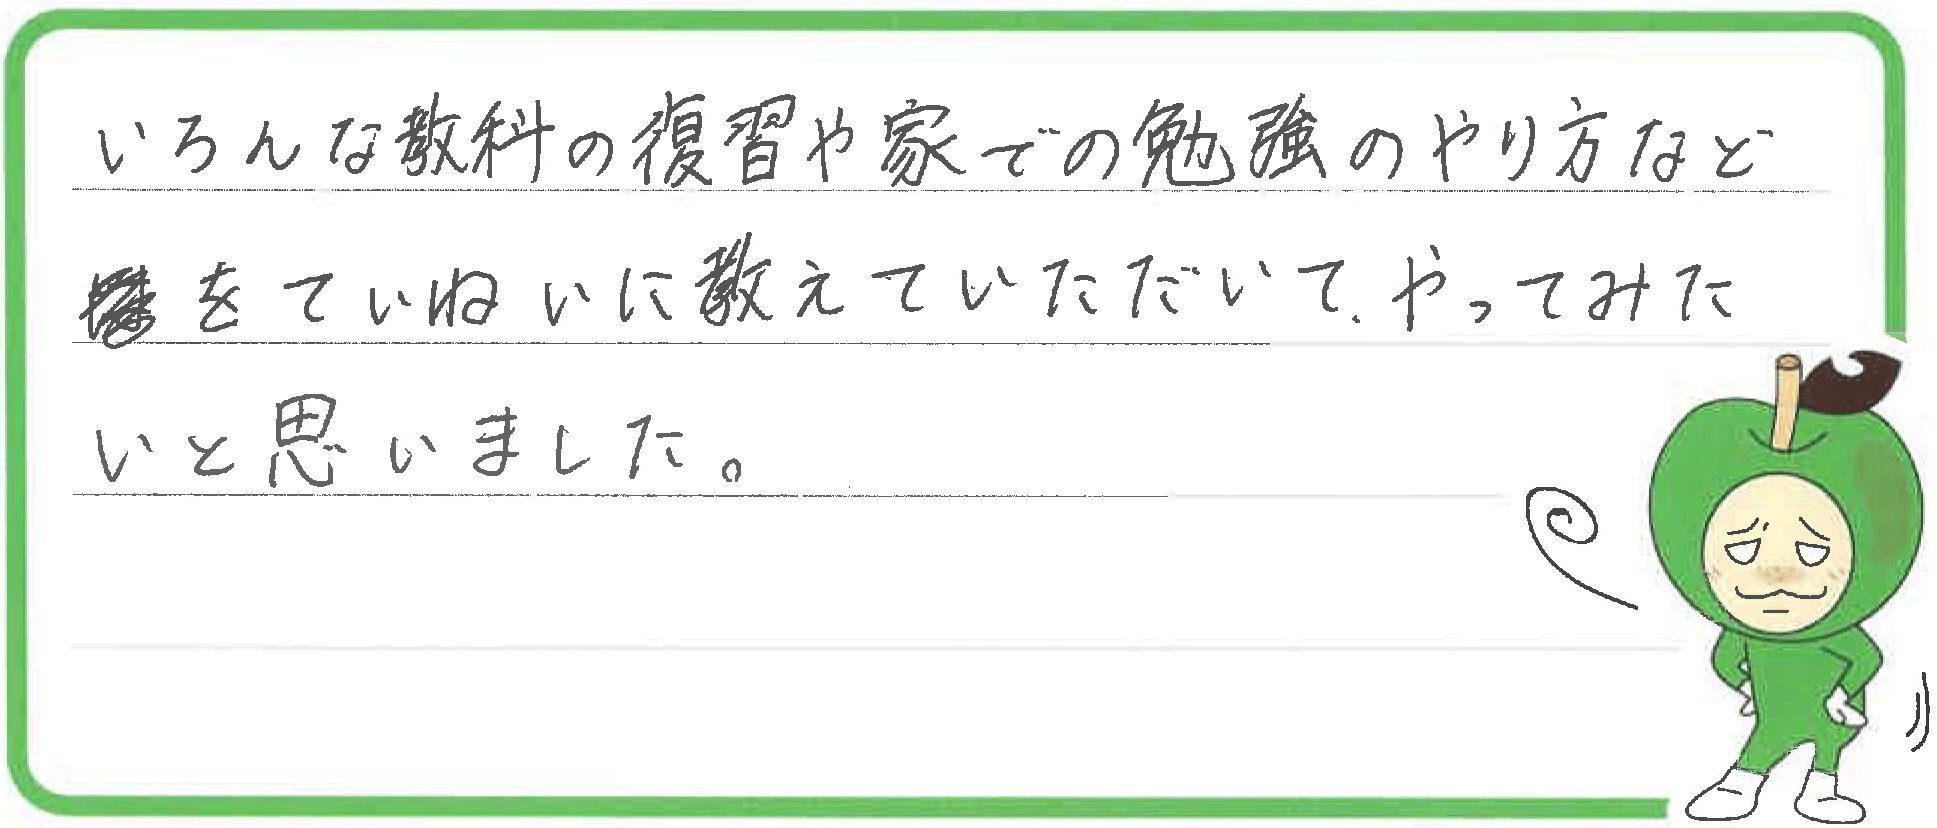 いろんな教科の復習や家での勉強のやり方など
をていねいに教えていただいて、やってみた
いと思いました。